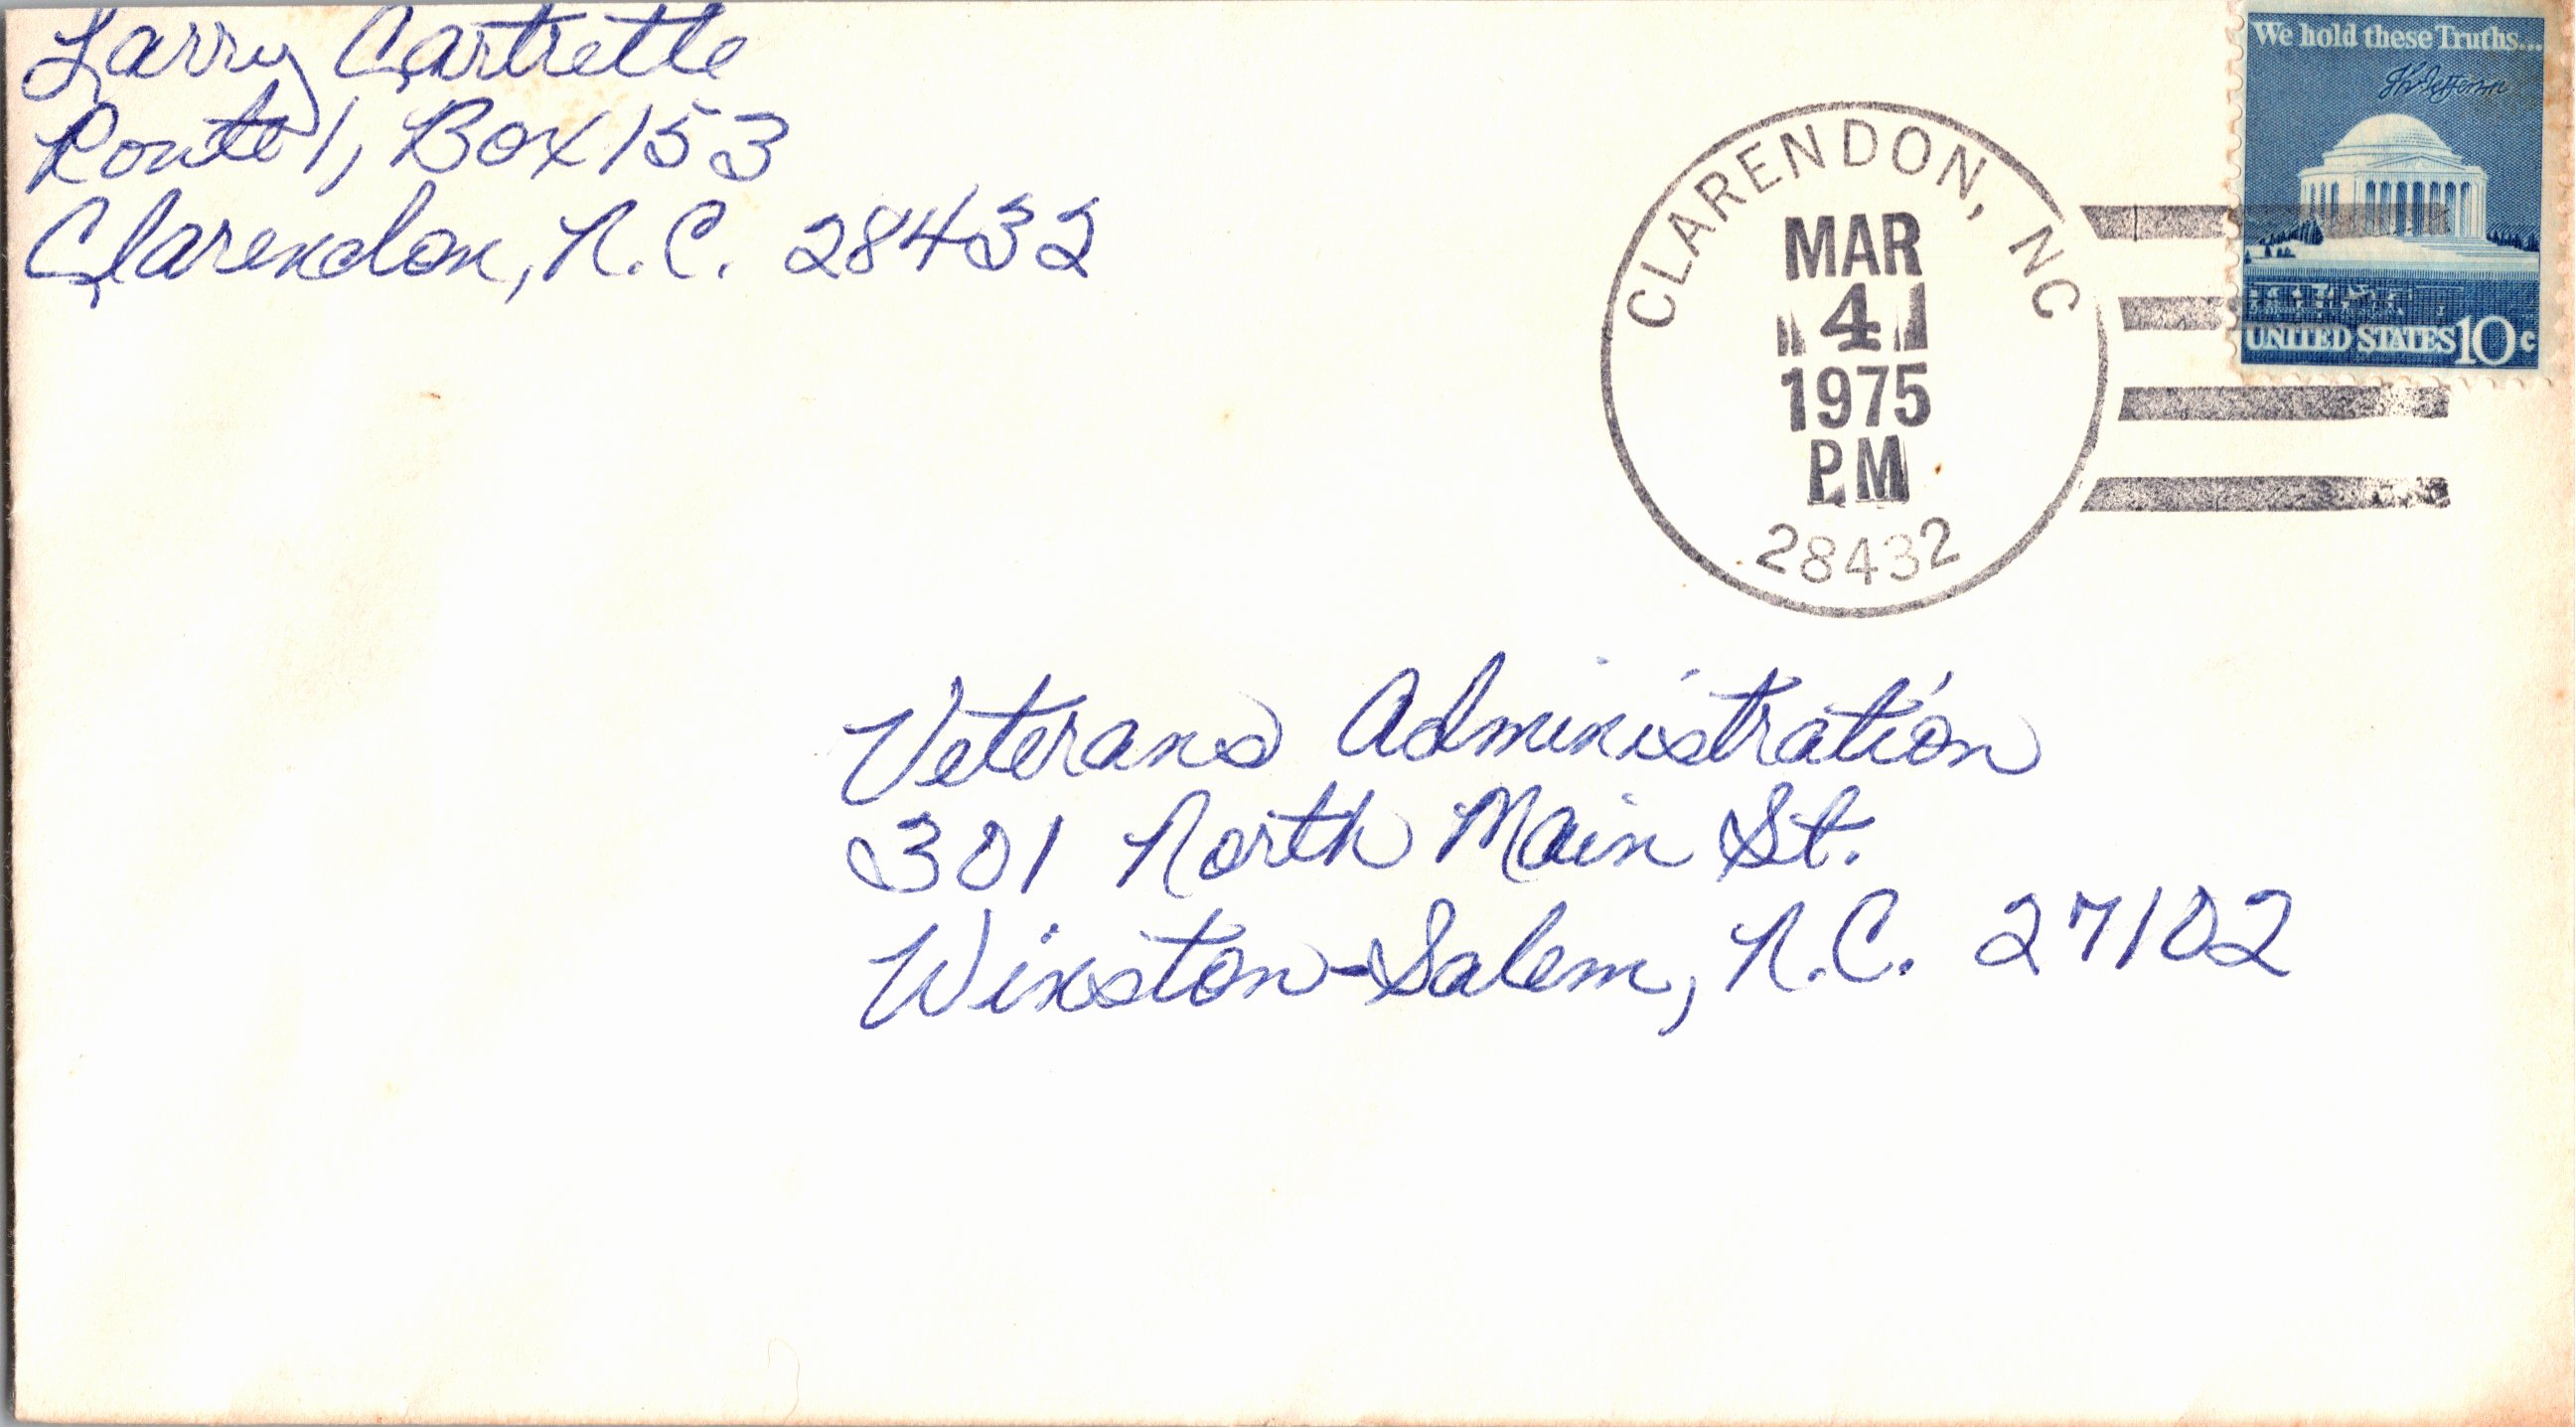 Larry Cartrette
Route 1, Box 153
Clarendon, N.C. 28432
We hold these Truths...
Th Jefferson
UNITED STATES 10c
CLARENDON, NC
MAR
4
1975
PM
28432
Veterans Administration
301 North Main St.
Winston-Salem, N.C. 27102